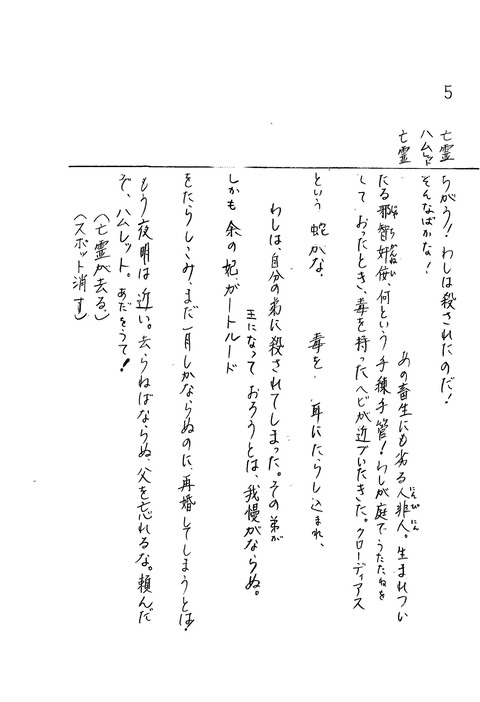 5
亡霊 ちがう!わしは殺されたのだ!
ハムレット そんなばかな!
亡霊 あの畜生にも劣る人非人。生まれつい
たる邪智奸佞、何という手練手管!わしが庭でうたたねを
しておったとき、毒を持ったヘビが近づいたきた。クローディアス
という 蛇がな、 毒を 耳にたらし込まれ、
わしは、自分の弟に殺されてしまった。その弟が
王になって おろうとは、我慢がならぬ。
しかも 余の妃、ガートルード
をたらしこみ、まだ一月しかならぬのに、再婚してしまうとは!
もう夜明は 近い。去らねばならぬ、父を忘れるな。頼んだ
ぞ、ハムレット。あだをうて!
(亡霊が去る)
(スポット消す)